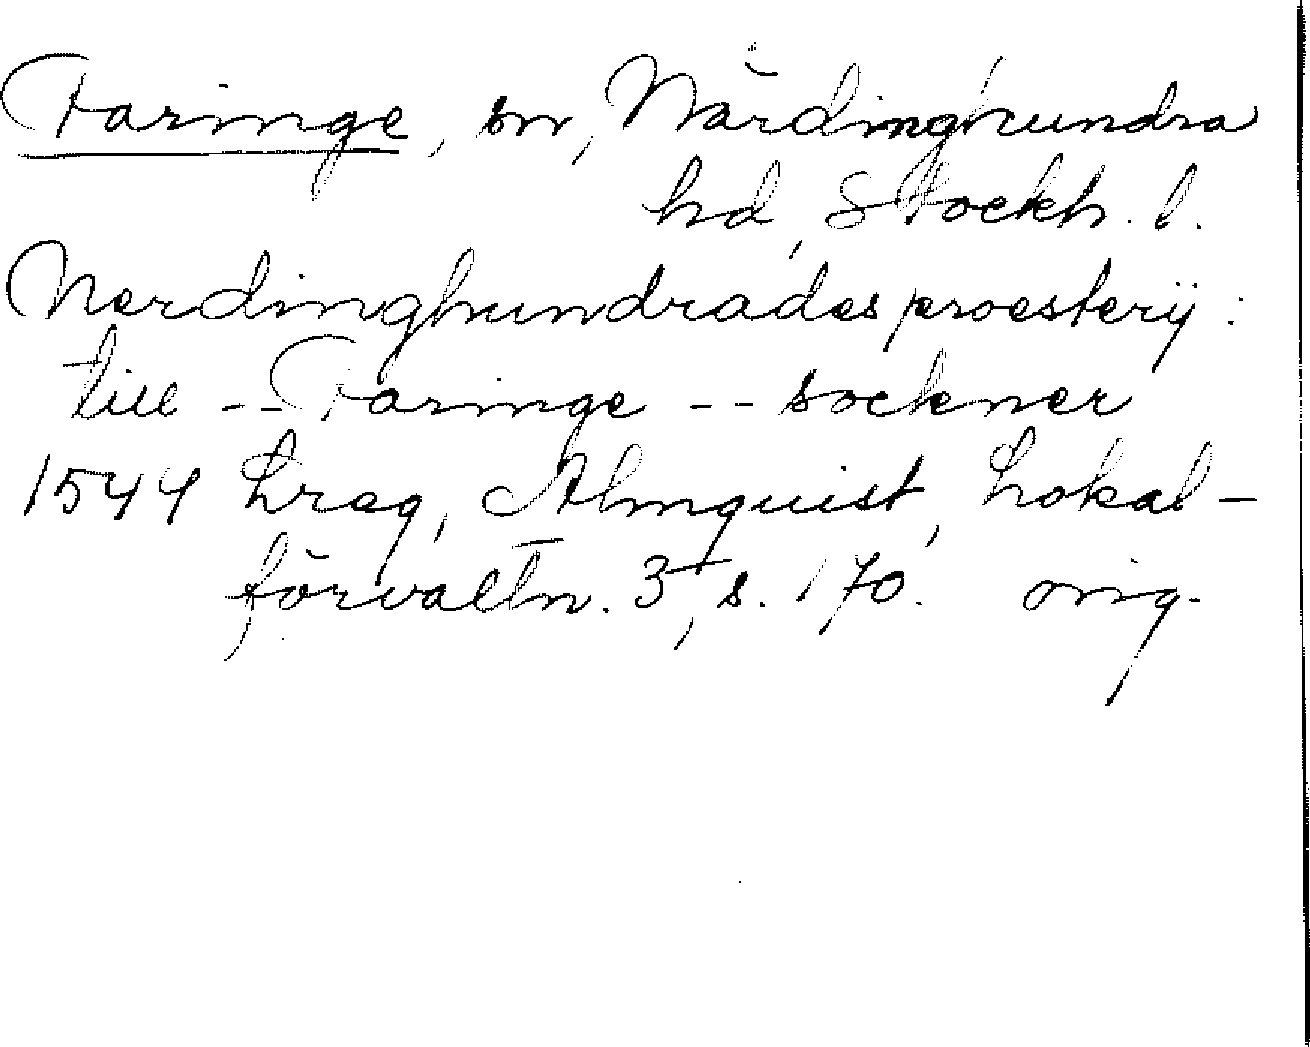 Faringe, sn, Närdinghundra
hd, Stockh. l.
Nerdinghundrades proesterij:
till -- Faringe -- sockner
1544 Lreg, Almquist, Lokal-
förvaltn. 3, s. 170. orig.